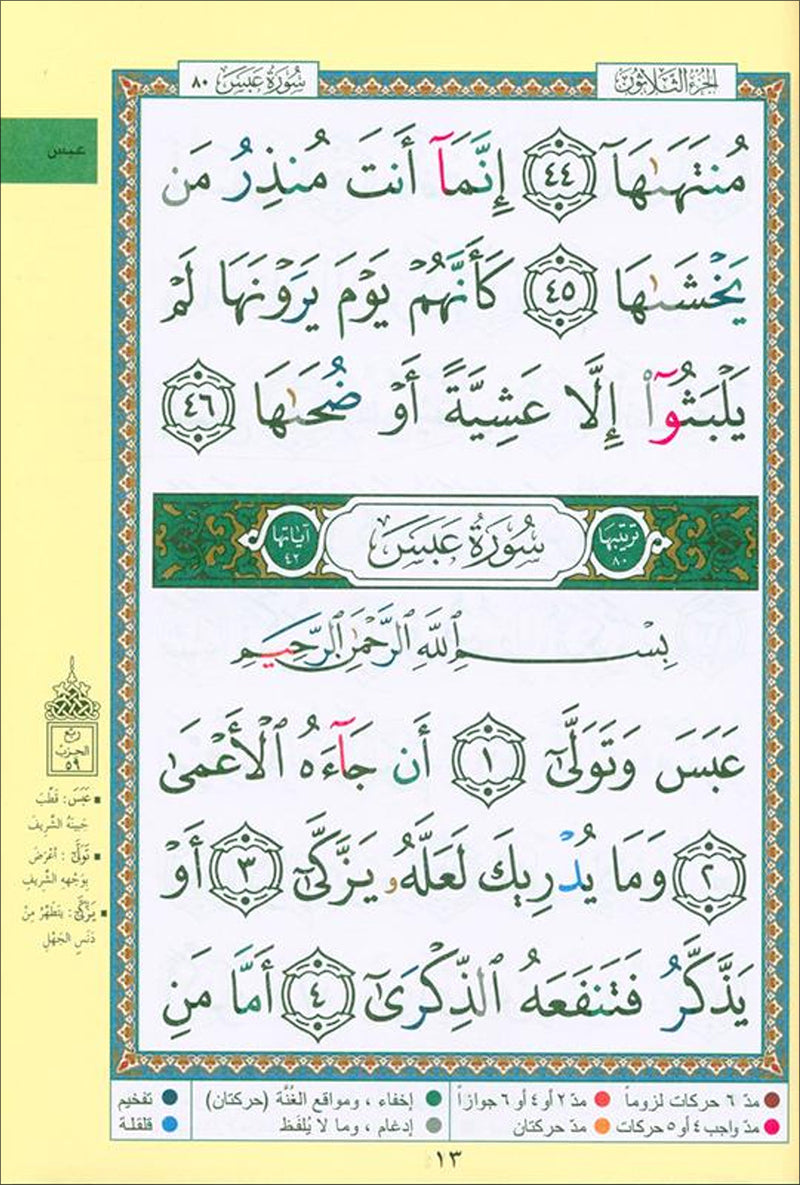 الجزء الثلاثون
سورة عبس ٨٠
عبس
مُنتَهَىٰهَآ ٤٤ إِنَّمَآ أَنتَ مُنذِرُ مَن
يَخْشَىٰهَا ٤٥ كَأَنَّهُمْ يَوْمَ يَرَوْنَهَا لَمْ
يَلْبَثُوٓا۟ إِلَّا عَشِيَّةً أَوْ ضُحَىٰهَا ٤٦
ترتيبها ٨٠ سُورَةُ عَبَسَ آياتها ٤٢
بِسْمِ ٱللَّهِ ٱلرَّحْمَٰنِ ٱلرَّحِيمِ
عَبَسَ وَتَوَلَّىٰٓ ١ أَن جَآءَهُ ٱلْأَعْمَىٰ
٢ وَمَا يُدْرِيكَ لَعَلَّهُۥ يَزَّكَّىٰٓ ٣ أَوْ
يَذَّكَّرُ فَتَنفَعَهُ ٱلذِّكْرَىٰٓ ٤ أَمَّا مَنِ
ربع
الحزب
٥٩
عَبَسَ: قَطَّبَ
جَبِينَهُ الشَّرِيفَ
تَوَلَّىٰ: أعْرَضَ
بِوَجْهِهِ الشَّرِيفِ
يَزَّكَّىٰ: يَتَطَهَّرُ مِنْ
دَنَسِ الجَهْلِ
مدّ ٦ حركات لزوماً
مدّ ٢ أو ٤ أو ٦ جوازاً
مدّ واجب ٤ أو ٥ حركات
مدّ حركتان
إخفاء ، ومواقع الغُنَّة (حركتان)
إدغام ، وما لا يُلفَظ
تفخيم
قلقلة
١٣